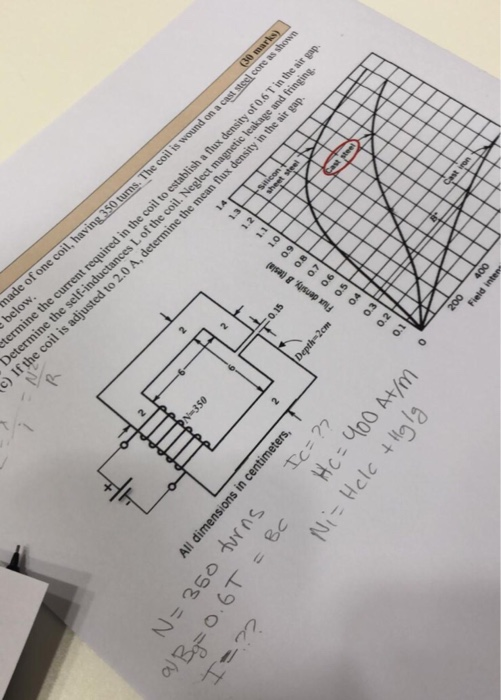 (30 marks)
made of one coil, having 350 turns. The coil is wound on a cast steel core as shown
below.
etermine the current required in the coil to establish a flux density of 0.6 T in the air gap.
Determine the self-inductances L of the coil. Neglect magnetic leakage and fringing.
(c) If the coil is adjusted to 2.0 A, determine the mean flux density in the air gap.
N²
i
R
2
2
6
6
N=350
2
2
0.15
Depth=2cm
All dimensions in centimeters,
Flux density, B (tesla)
1.4
1.3
1.2
1.1
1.0
0.9
0.8
0.7
0.6
0.5
0.4
0.3
0.2
0.1
0
200
400
Field inten
Silicon
sheet steel
Cast steel
Cast iron
N = 350 turns
a) Bg = 0.6T = Bc
I = ??
Ic = ??
Hc = 400 At/m
Ni = Hclc + Hglg